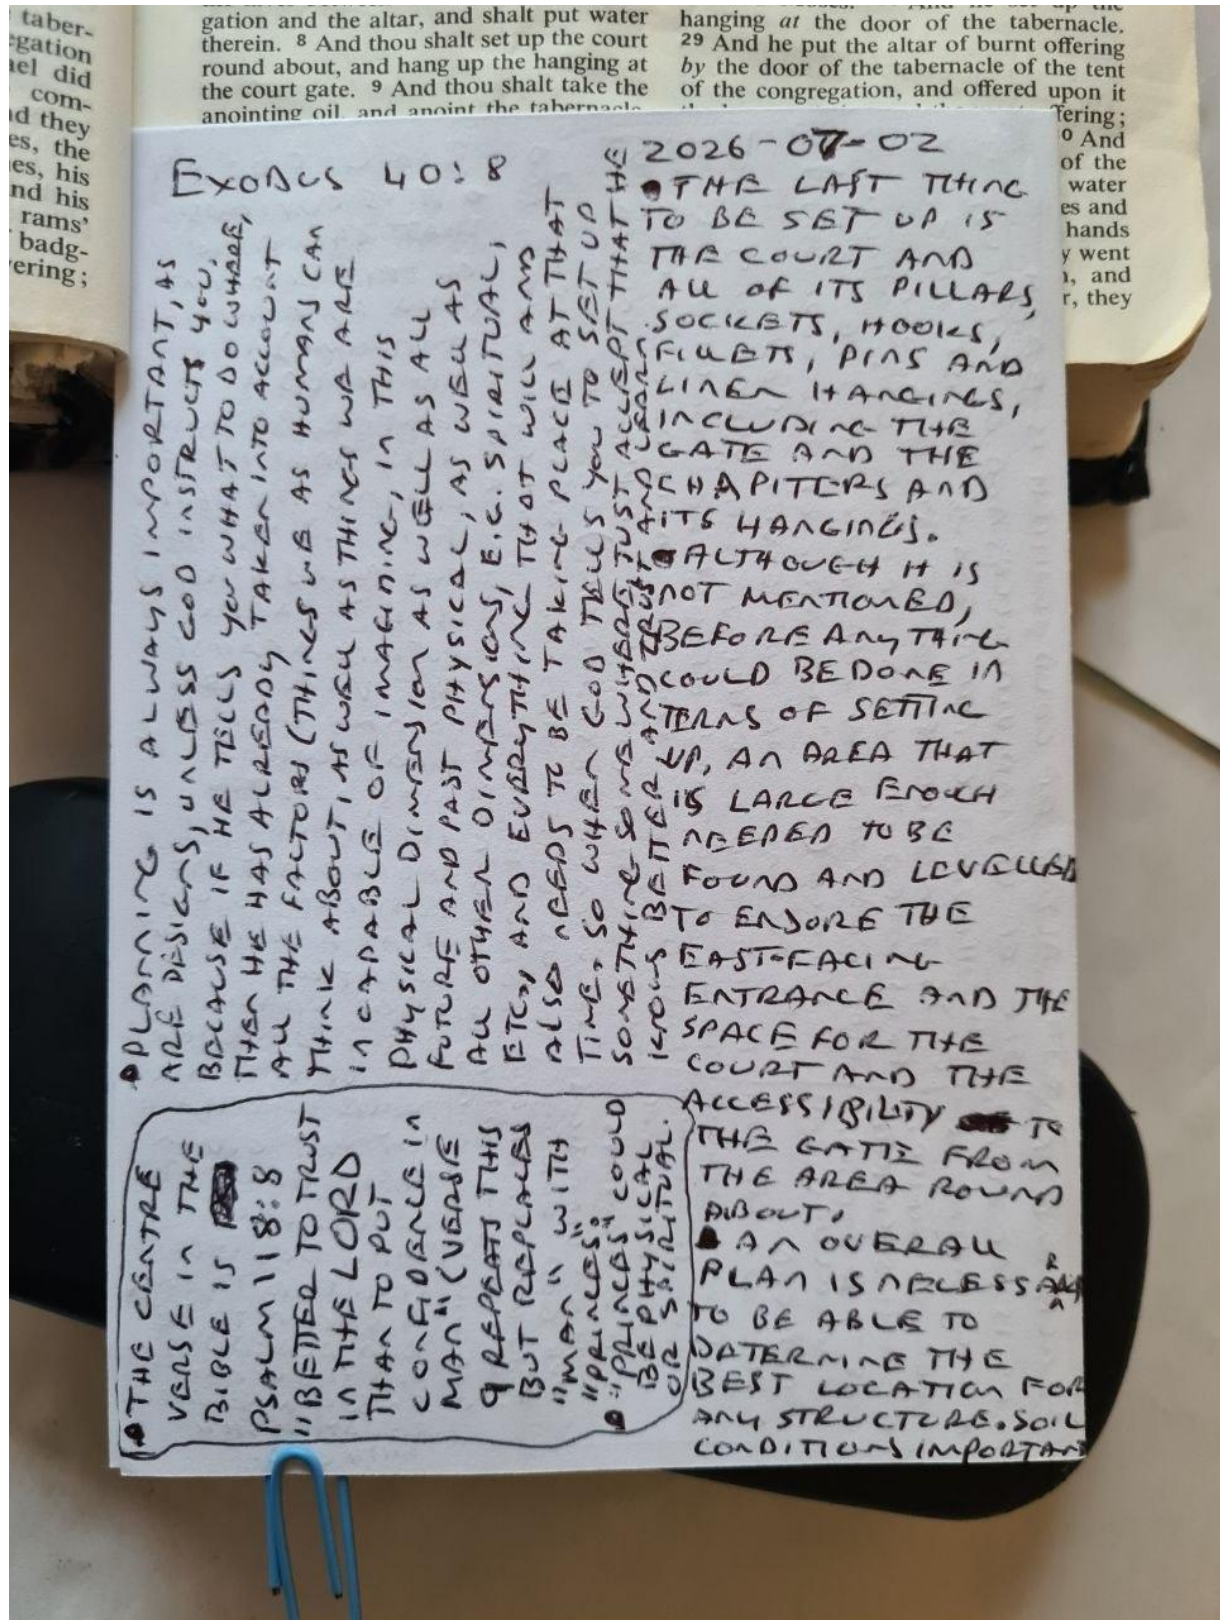 taber-
egation
ael did
com-
d they
es, the
es, his
nd his
rams'
badg-
ering;
gation and the altar, and shalt put water
therein. 8 And thou shalt set up the court
round about, and hang up the hanging at
the court gate. 9 And thou shalt take the
anointing oil, and anoint the tabernacle
hanging at the door of the tabernacle.
29 And he put the altar of burnt offering
by the door of the tabernacle of the tent
of the congregation, and offered upon it
fering;
0 And
of the
water
es and
hands
y went
, and
r, they
EXODUS 40:8
2026-07-02
• THE LAST THING
TO BE SET UP IS
THE COURT AND
ALL OF ITS PILLARS,
SOCKETS, HOOKS,
FILLETS, PINS AND
LINEN HANGINGS,
INCLUDING THE
GATE AND THE
CHAPITERS AND
ITS HANGINGS.
• ALTHOUGH IT IS
NOT MENTIONED,
BEFORE ANYTHING
COULD BE DONE IN
TERMS OF SETTING
UP, AN AREA THAT
IS LARGE ENOUGH
NEEDED TO BE
FOUND AND LEVELLED
TO ENSURE THE
EAST-FACING
ENTRANCE AND THE
SPACE FOR THE
COURT AND THE
ACCESSIBILITY TO
THE GATE FROM
THE AREA ROUND
ABOUT.
• AN OVERALL
PLAN IS NECESSARY
TO BE ABLE TO
DETERMINE THE
BEST LOCATION FOR
ANY STRUCTURE. SOIL
CONDITIONS IMPORTANT
• PLANNING IS ALWAYS IMPORTANT, AS
ARE DESIGNS, UNLESS GOD INSTRUCTS YOU,
BECAUSE IF HE TELLS YOU WHAT TO DO WHERE,
THEN HE HAS ALREADY TAKEN INTO ACCOUNT
ALL THE FACTORS (THINGS WE AS HUMANS CAN
THINK ABOUT, AS WELL AS THINGS WE ARE
INCAPABLE OF IMAGINING, IN THIS
PHYSICAL DIMENSION AS WELL AS ALL
FUTURE AND PAST PHYSICAL, AS WELL AS
ALL OTHER DIMENSIONS, E.G. SPIRITUAL,
ETC., AND EVERYTHING THAT WILL AND
ALSO NEEDS TO BE TAKING PLACE AT THAT
TIME. SO WHEN GOD TELLS YOU TO SET UP
SOMETHING SOMEWHERE JUST ACCEPT THAT HE
KNOWS BETTER AND TRUST AND LEARN.
• THE CENTRE
VERSE IN THE
BIBLE IS
PSALM 118:8
"BETTER TO TRUST
IN THE LORD
THAN TO PUT
CONFIDENCE IN
MAN" (VERSE
9 REPEATS THIS
BUT REPLACES
"MAN" WITH
"PRINCES".
• "PRINCES" COULD
BE PHYSICAL
OR SPIRITUAL.